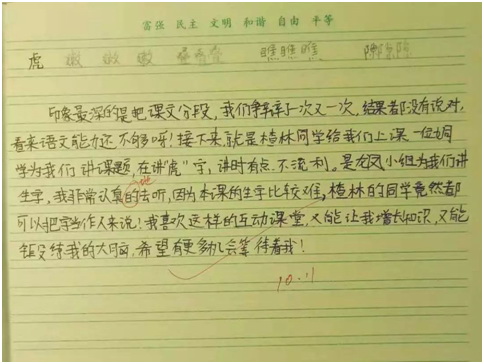 富强 民主 文明 和谐 自由 平等
虎 瞧瞧瞧
印象最深的是把课文分段,我们争辩了一次又一次,结果都没有说对,
看来语文能力还不够呀!接下来就是楂林同学给我们上课一位同
学为我们讲课题,在讲"虎"字,讲时有点不流利。是龙凤小组为我们讲
地
生字,我非常认真的去听,因为本课的生字比较难,楂林的同学竟然都
可以把字当作人来说!我喜欢这样的互动课堂,又能让我增长知识,又能
锻练我的大脑,希望有更多机会等待着我!
10.11